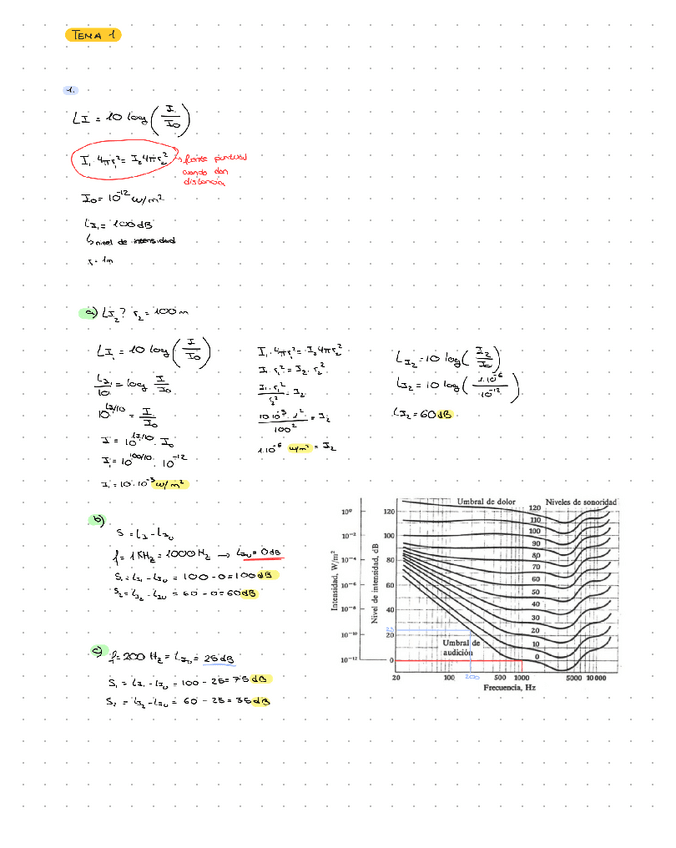 TEMA 1
1.
LI = 10 log (I/I₀)
I₁ 4πr₁² = I₂ 4πr₂² → fuente puntual
cuando dan
distancia
I₀ = 10⁻¹² w/m²
LI₁ = 100 dB
↳ nivel de intensidad
r₁ = 1m
a) LI₂? r₂ = 100 m
LI₁ = 10 log (I/I₀)
LI₁/10 = log I/I₀
10^(LI/10) = I/I₀
I = 10^(LI/10) · I₀
I₁ = 10^(100/10) · 10⁻¹²
I₁ = 10·10⁻³ w/m²
I₁·4πr₁² = I₂ 4πr₂²
I₁·r₁² = I₂·r₂²
I₁·r₁²/r₂² = I₂
10·10⁻³·1²/100² = I₂
1·10⁻⁶ w/m² = I₂
LI₂ = 10 log (I₂/I₀)
LI₂ = 10 log (1·10⁻⁶/10⁻¹²)
LI₂ = 60 dB
b)
S = LI - LIu
f = 1 KHz = 1000 Hz → LIu = 0 dB
S₁ = LI₁ - LIu = 100 - 0 = 100 dB
S₂ = LI₂ - LIu = 60 - 0 = 60 dB
c) f = 200 Hz = LIu = 25 dB
S₁ = LI₁ - LIu = 100 - 25 = 75 dB
S₂ = LI₂ - LIu = 60 - 25 = 35 dB
Umbral de dolor
Niveles de sonoridad
120
110
100
90
80
70
60
50
40
30
20
10
0
Intensidad, W/m²
10⁰
10⁻²
10⁻⁴
10⁻⁶
10⁻⁸
10⁻¹⁰
10⁻¹²
Nivel de intensidad, dB
120
100
80
60
40
20
0
Umbral de
audición
20 100 200 500 1000 5000 10000
Frecuencia, Hz